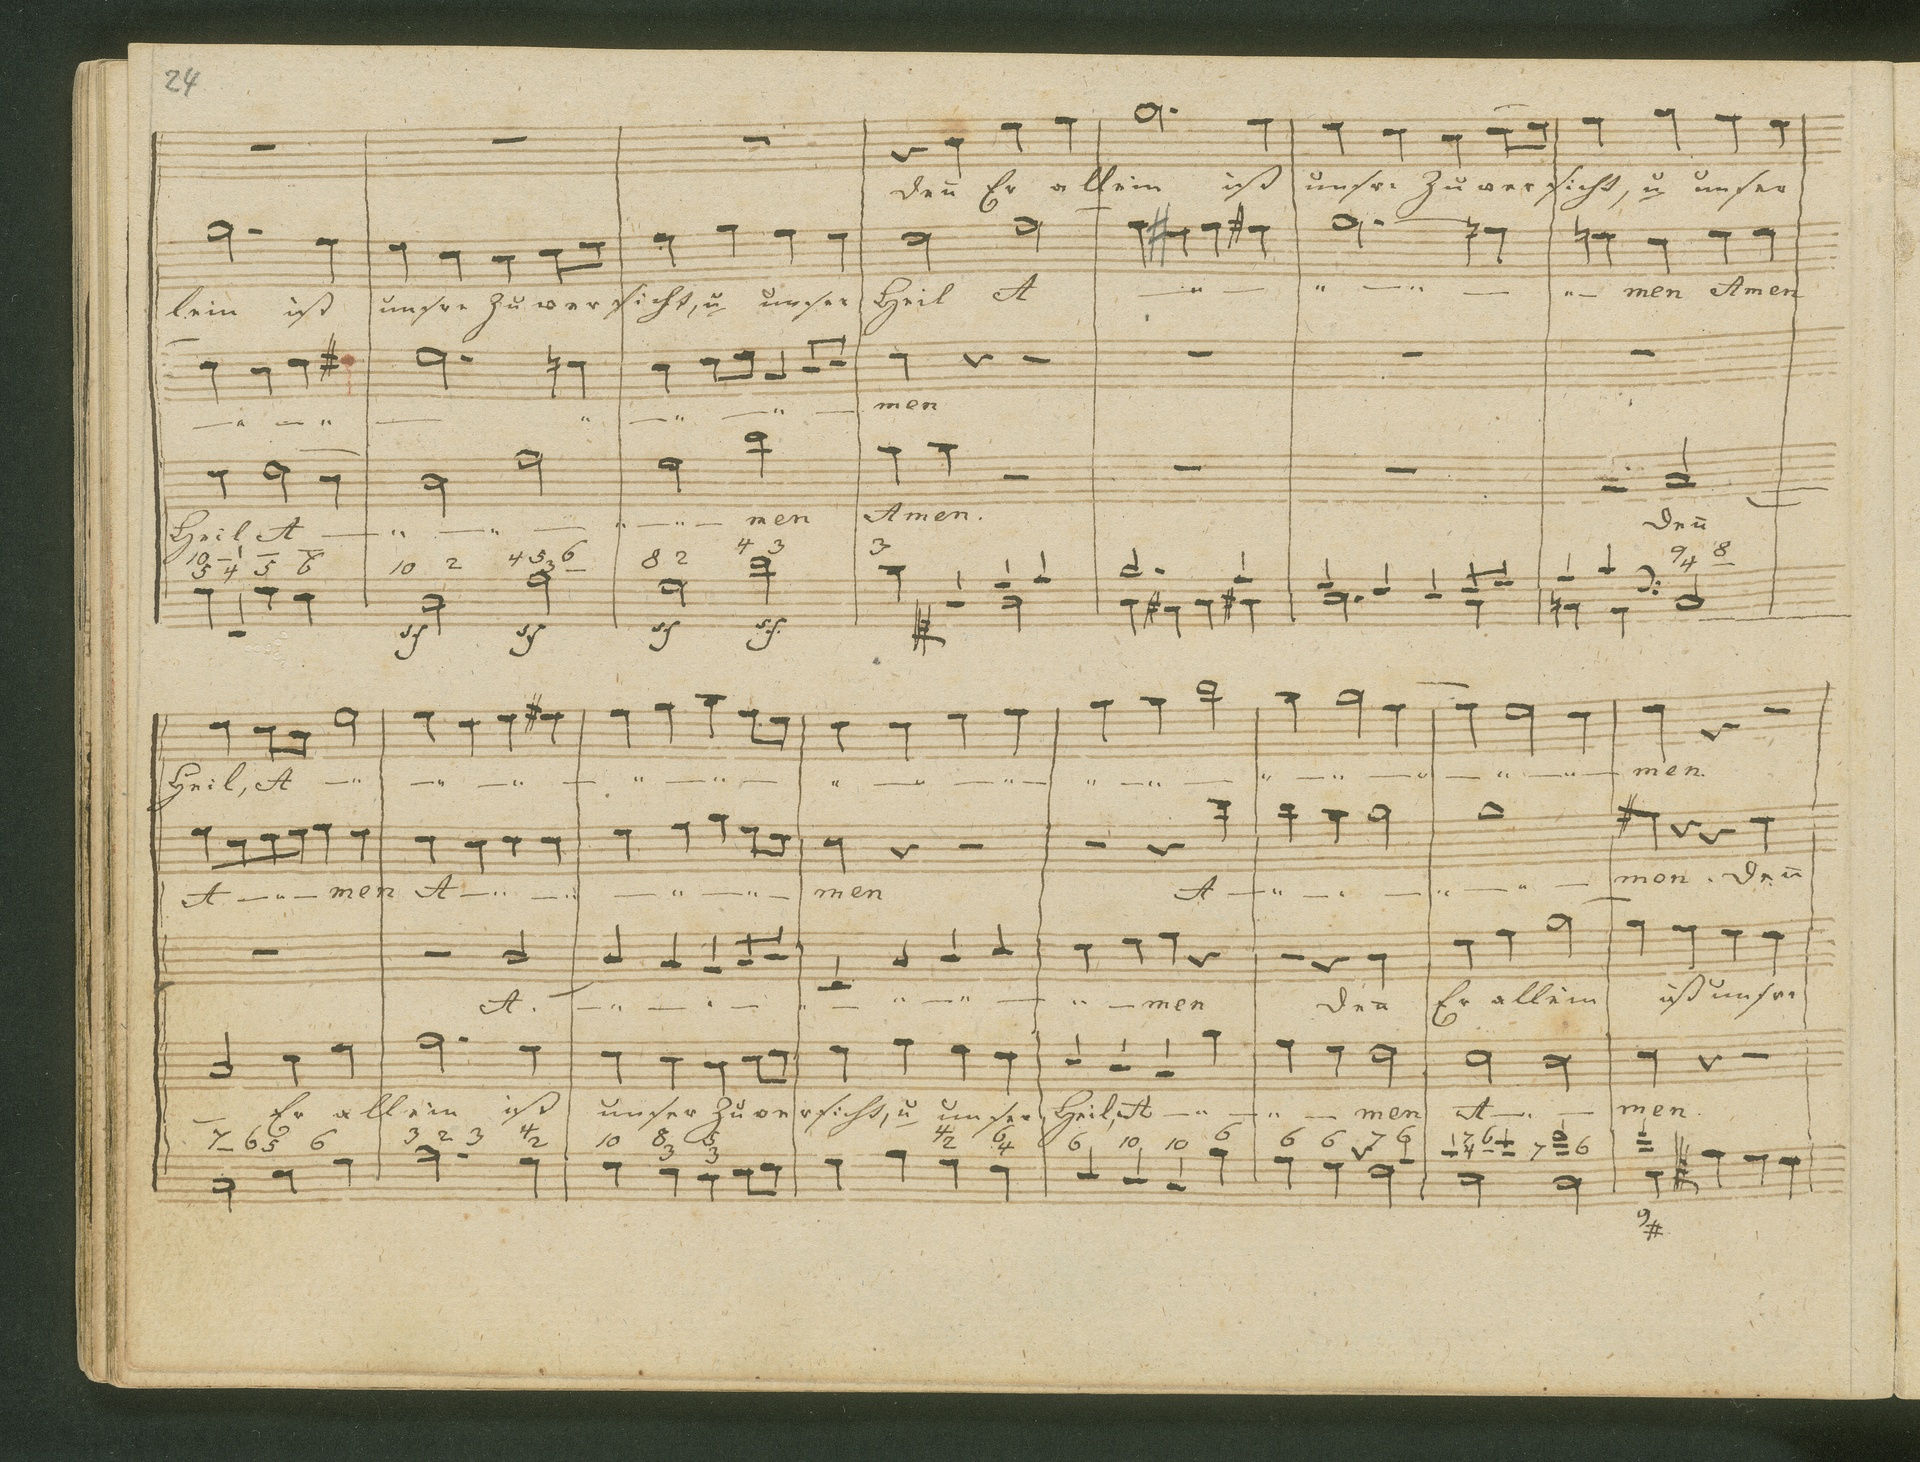 24
Den̄ Er allein ist unsre Zuversicht, u unser
lein ist unsre Zuversicht, u unser Heil A — " — " — " — " — men Amen
— " — " — " — " — " — men
Heil A — " — " — " — " — men Amen. Den̄
10 5 4 5 6 10 2 4 5 3 6 8 2 4 3 3 9 4 8
sf sf sf sf.
Heil, A — " — " — " — " — " — " — men.
A — " — men A — " — " — " — " — men A — " — " — " — men. Den̄
A. — " — " — " — " — " — men Den Er allein ist unsre
Er allein ist unser Zuversicht, u unser Heil, A — " — " — men A — " — men.
7 6 5 6 3 2 3 4 2 10 8 3 5 3 4 2 6 4 6 10 10 6 6 6 7 6 7 6 4 7 6
9 #